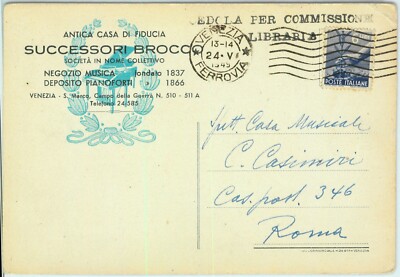 CEDOLA PER COMMISSIONE
LIBRARIA
ANTICA CASA DI FIDUCIA
SUCCESSORI BROCCO
SOCIETÀ IN NOME COLLETTIVO
NEGOZIO MUSICA fondato 1837
DEPOSITO PIANOFORTI " 1866
VENEZIA - S. Marco, Campo della Guerra N. 510 - 511 A
Telefono 24-585
VENEZIA
13-14
24·V
1949
FERROVIA
POSTE ITALIANE
Casa Musicale
C. Casimiri
Cas. post. 346
Roma